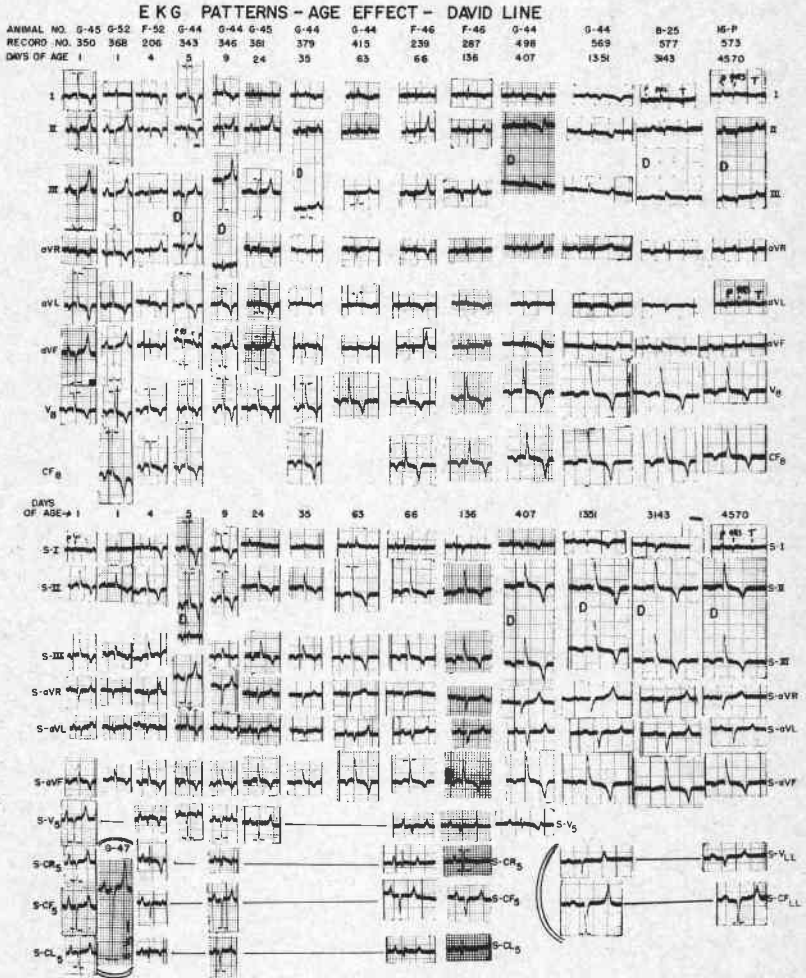 EKG PATTERNS - AGE EFFECT - DAVID LINE
ANIMAL NO. G-45 G-52 F-52 G-44 G-44 G-45 G-44 G-44 F-46 F-46 G-44 G-44 B-25 16-P
RECORD NO. 350 368 206 343 346 381 379 415 239 287 498 569 577 573
DAYS OF AGE 1 1 4 5 9 24 35 63 66 136 407 1351 3143 4570
I P QRS T P QRS T I
II II
III D D D D D D III
aVR aVR
aVL P QRS T aVL
aVF aVF
V8 V8
CF8 CF8
DAYS
OF AGE→ 1 1 4 5 9 24 35 63 66 136 407 1351 3143 4570
S-I P QRS T S-I
S-II S-II
D D D D D
S-III S-III
S-aVR S-aVR
S-aVL S-aVL
S-aVF S-aVF
S-V5 S-V5
G-47
S-CR5 S-CR5 S-VLL
S-CF5 S-CF5 S-CFLL
S-CL5 S-CL5